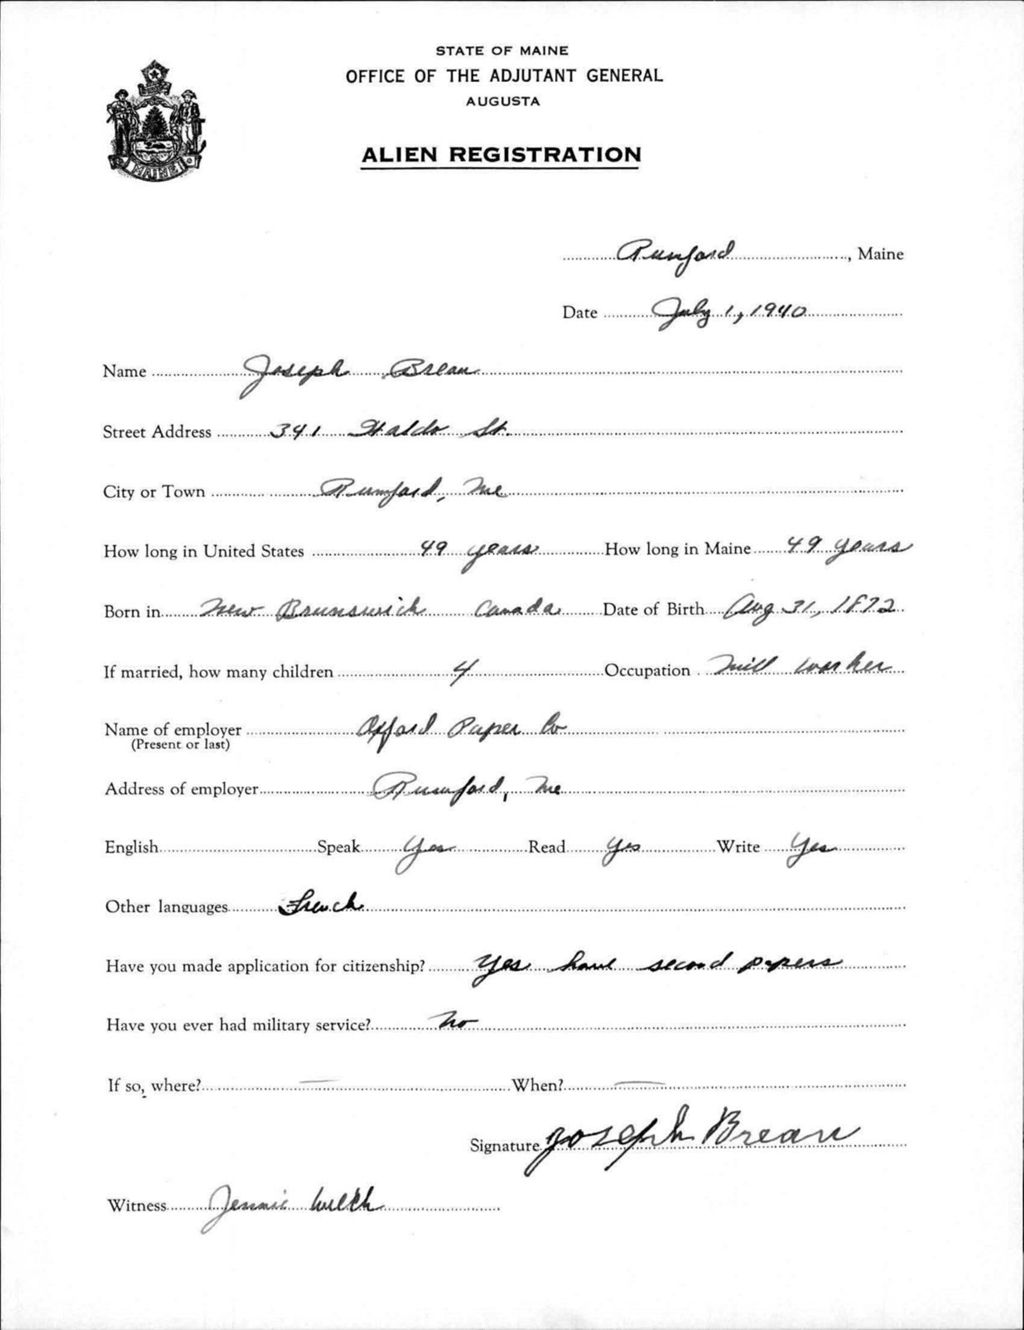 STATE OF MAINE
OFFICE OF THE ADJUTANT GENERAL
AUGUSTA
ALIEN REGISTRATION
Rumford, Maine
Date July 1, 1940
Name Joseph Brean
Street Address 341 Waldo St.
City or Town Rumford, Me
How long in United States 49 years How long in Maine 49 years
Born in New Brunswick Canada Date of Birth Aug 31, 1872
If married, how many children 4 Occupation Mill worker
Name of employer Oxford Paper Co
(Present or last)
Address of employer Rumford, Me
English Speak Yes Read Yes Write Yes
Other languages French
Have you made application for citizenship? Yes have second papers
Have you ever had military service? No
If so, where? — When? —
Signature Joseph Brean
Witness Jennie Welch